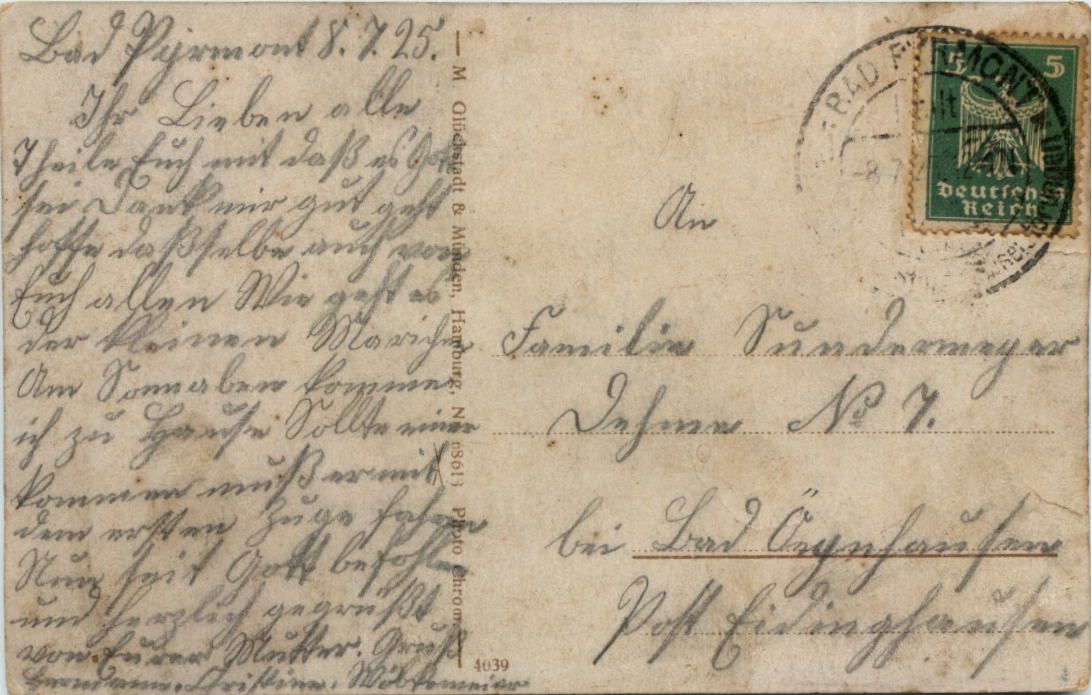 Bad Pyrmont 8. 7. 25.
Ihr Lieben alle
Theile Euch mit daß es Gott
sei Dank mir gut geht
hoffe daßselbe auch von
Euch allen Wie geht es
der kleinen Mariche
Am Sonnaben komme
ich zu Hause Sollte einer
kommen muß er mit
dem ersten Zuge fahren
Nun seit Gott befohlen
und herzlich gegrüßt
von Eurer Mutter. Gruß
Christine
M. Glückstadt & Münden, Hamburg,
Photochrom
4039
BAD PYRMONT
8.7
5 5
Deutsches
Reich
An
Familie Sundermeyer
Dehme No 7.
bei Bad Öeynhausen
Post Eidinghausen